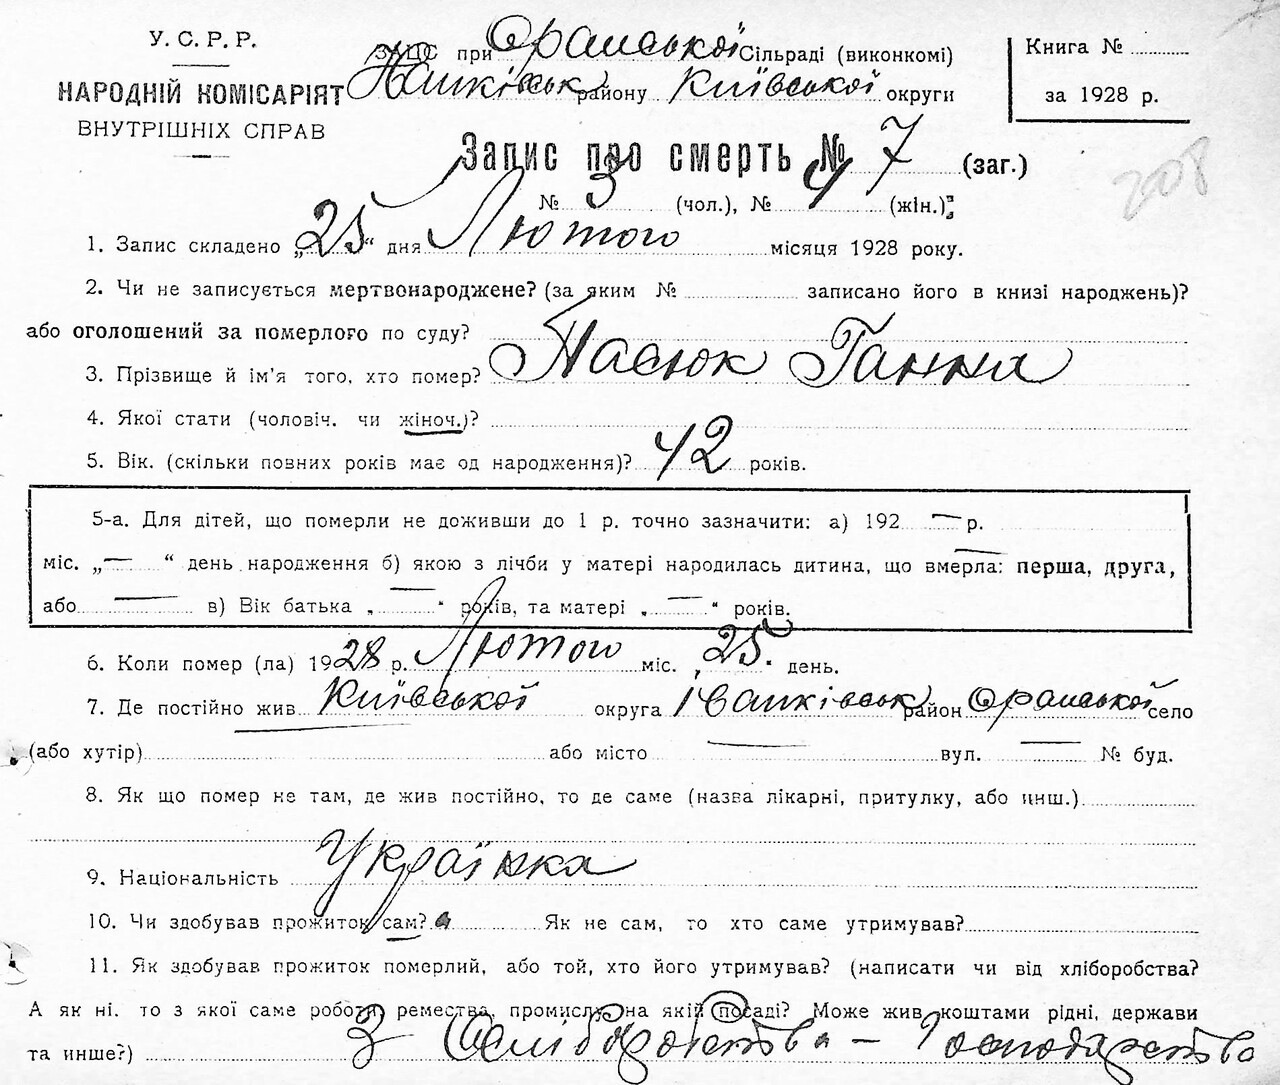 У. С. Р. Р.
НАРОДНІЙ КОМІСАРІЯТ
ВНУТРІШНІХ СПРАВ
ЗАГС при Оранської Сільраді (виконкомі)
Іванківськ району Київської округи
Книга №
за 1928 р.
Запис про смерть № 7 (заг.)
208
№ 3 (чол.), № 4 (жін.)
1. Запис складено „25“ дня Лютого місяця 1928 року.
2. Чи не записується мертвонароджене? (за яким № записано його в книзі народжень)?
або оголошений за померлого по суду?
3. Прізвище й ім'я того, хто помер? Пасюк Ганна
4. Якої стати (чоловіч. чи жіноч.)?
5. Вік. (скільки повних років має од народження)? 42 років.
5-а. Для дітей, що померли не доживши до 1 р. точно зазначити: а) 192 — р.
міс. „—“ день народження б) якою з лічби у матері народилась дитина, що вмерла: перша, друга,
або — в) Вік батька „—“ років, та матері „—“ років.
6. Коли помер (ла) 1928 р. Лютого міс. „25“ день.
7. Де постійно жив Київської округа Іванківськ район Оранської село
(або хутір) або місто — вул. — № буд.
8. Як що помер не там, де жив постійно, то де саме (назва лікарні, притулку, або инш.)
9. Національність Українка
10. Чи здобував прожиток сам? а Як не сам, то хто саме утримував?
11. Як здобував прожиток померлий, або той, хто його утримував? (написати чи від хліборобства?
А як ні, то з якої саме роботи, ремества, промислу, на якій посаді? Може жив коштами рідні, держави
та инше?) З Сельсько – Господарства